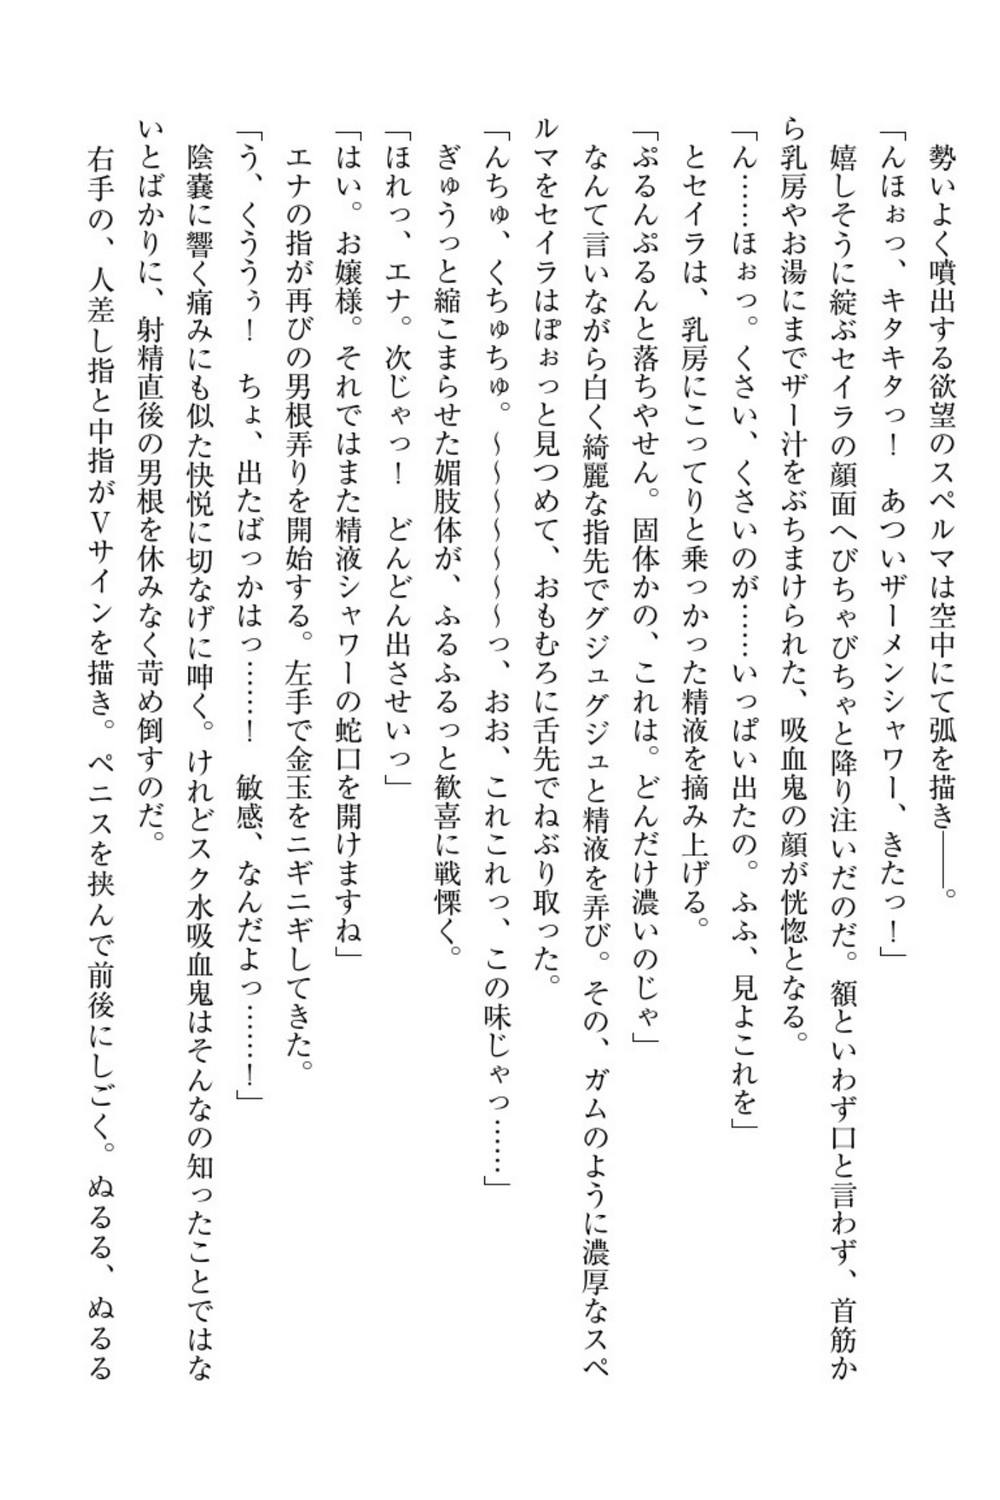 勢いよく噴出する欲望のスペルマは空中にて弧を描き――。
「んほぉっ、キタキタっ！　あついザーメンシャワー、きたっ！」
嬉しそうに綻ぶセイラの顔面へびちゃびちゃと降り注いだのだ。額といわず口と言わず、首筋か
ら乳房やお湯にまでザー汁をぶちまけられた、吸血鬼の顔が恍惚となる。
「ん……ほぉっ。くさい、くさいのが……いっぱい出たの。ふふ、見よこれを」
とセイラは、乳房にこってりと乗っかった精液を摘み上げる。
「ぷるんぷるんと落ちやせん。固体かの、これは。どんだけ濃いのじゃ」
なんて言いながら白く綺麗な指先でグジュグジュと精液を弄び。その、ガムのように濃厚なスペ
ルマをセイラはぽぉっと見つめて、おもむろに舌先でねぶり取った。
「んちゅ、くちゅちゅ。～～～～～～～っ、おお、これこれっ、この味じゃっ……」
ぎゅうっと縮こまらせた媚肢体が、ふるふるっと歓喜に戦慄く。
「ほれっ、エナ。次じゃっ！　どんどん出させいっ」
「はい。お嬢様。それではまた精液シャワーの蛇口を開けますね」
エナの指が再びの男根弄りを開始する。左手で金玉をニギニギしてきた。
「う、くううぅ！　ちょ、出たばっかはっ……！　敏感、なんだよっ……！」
陰嚢に響く痛みにも似た快悦に切なげに呻く。けれどスク水吸血鬼はそんなの知ったことではな
いとばかりに、射精直後の男根を休みなく苛め倒すのだ。
右手の、人差し指と中指がＶサインを描き。ペニスを挟んで前後にしごく。ぬるる、ぬるる